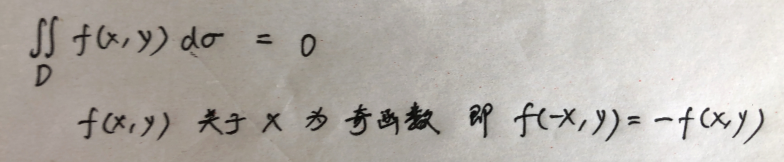 ∬ f(x,y) dσ = 0
D
f(x,y) 关于 x 为 奇函数 即 f(-x,y) = -f(x,y)